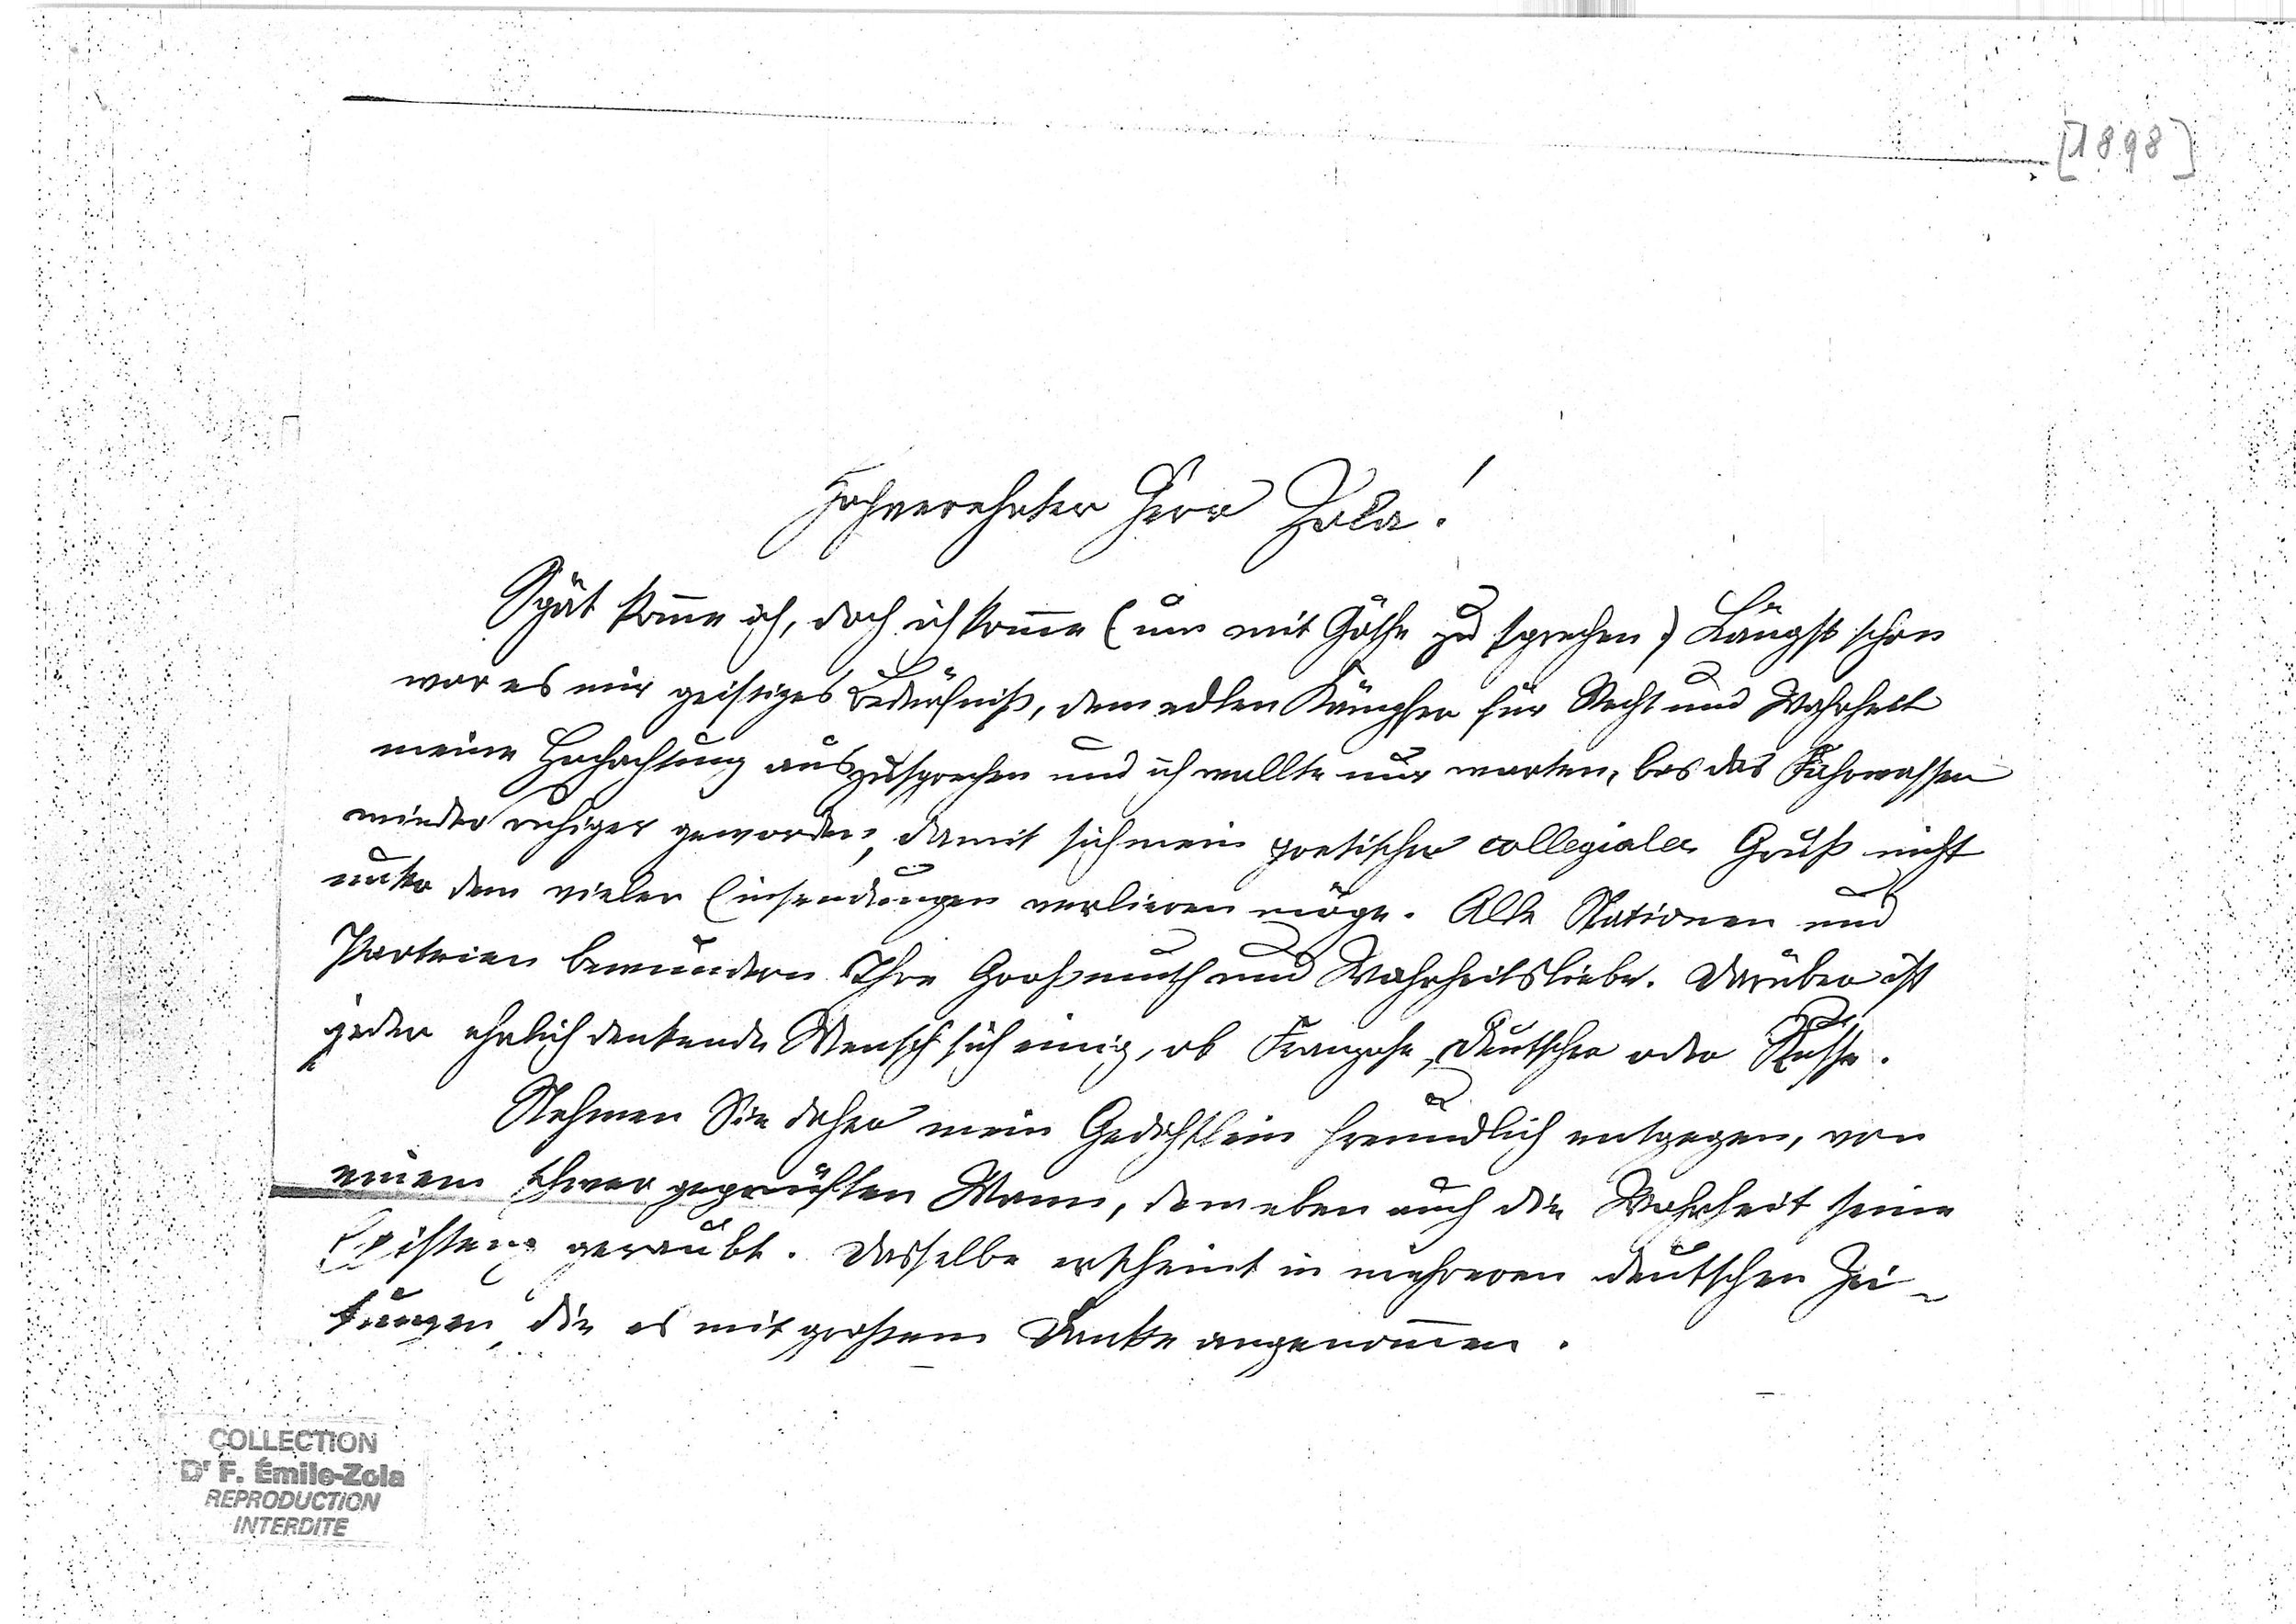 [1898]
Hochverehrter Herr Zola!
Spät komme ich, doch ich komme (um mit Göthe zu sprechen) Längst schon
war es mir geistiges Bedürfniß, dem edlen Kämpfer für Recht und Wahrheit
meine Hochachtung auszusprechen und ich wollte nur warten, bis das Fahrwasser
wieder ruhiger geworden, damit sich mein poetischer collegialer Gruß nicht
unter den vielen Einsendungen verlieren möge. Alle Nationen und
Parteien bewundern Ihre Großmuth und Wahrheitsliebe. Darüber ist
jeder ehrlich denkende Mensch sich einig, ob Franzose, Deutscher oder Russe.
Nehmen Sie daher mein Gedichtlein freundlich entgegen, von
einem schwer geprüften Mann, dem eben auch die Wahrheit seine
Existenz geraubt. Dasselbe erscheint in mehreren deutschen Zei-
tungen, die es mit großem Danke angenommen.
COLLECTION
Dr F. Émile-Zola
REPRODUCTION
INTERDITE